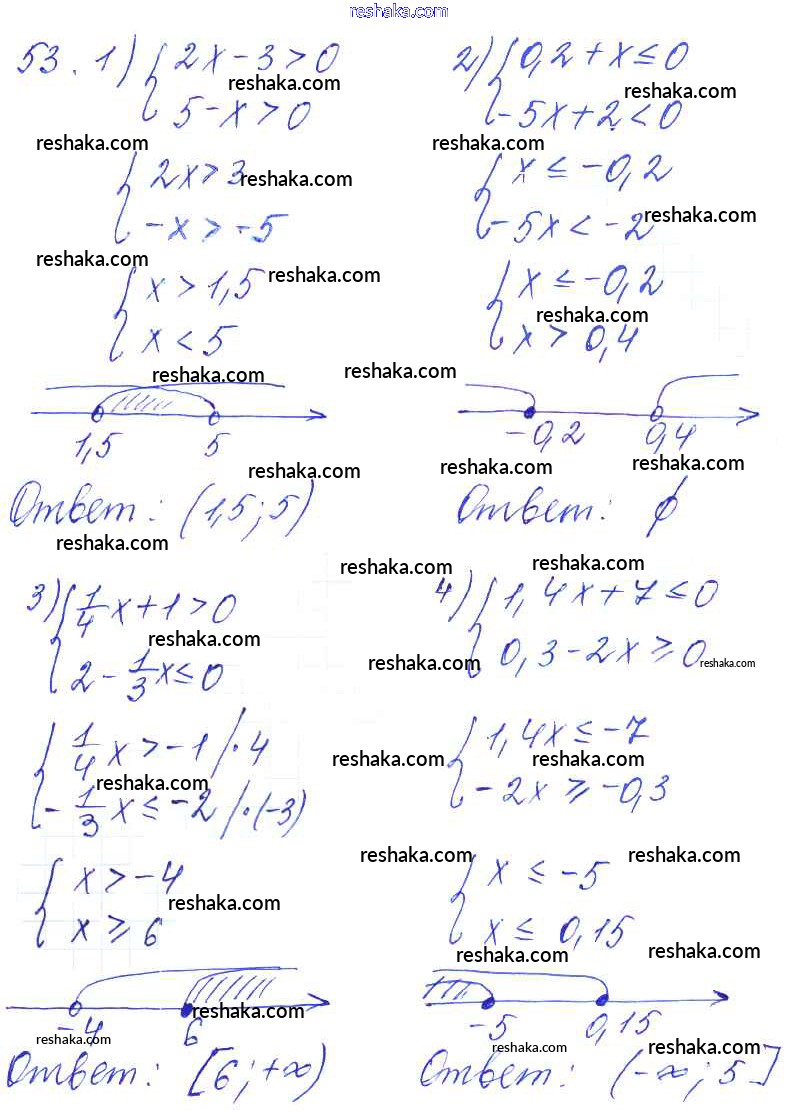 reshaka.com
53. 1) { 2x - 3 > 0
reshaka.com
5 - x > 0
reshaka.com
{ 2x > 3
reshaka.com
-x > -5
reshaka.com
{ x > 1,5
reshaka.com
x < 5
reshaka.com
1,5 5
reshaka.com
Ответ: (1,5; 5)
reshaka.com
2) { 0,2 + x ≤ 0
reshaka.com
-5x + 2 < 0
reshaka.com
{ x ≤ -0,2
reshaka.com
-5x < -2
{ x ≤ -0,2
reshaka.com
x > 0,4
reshaka.com
-0,2 0,4
reshaka.com reshaka.com
Ответ: ϕ
3) { 1/4 x + 1 > 0
reshaka.com
2 - 1/3 x ≤ 0
{ 1/4 x > -1 /·4
reshaka.com
-1/3 x ≤ -2 /·(-3)
{ x > -4
reshaka.com
x ≥ 6
-4 6
reshaka.com
reshaka.com
Ответ: [6; +∞)
reshaka.com reshaka.com
4) { 1,4x + 7 ≤ 0
0,3 - 2x ≥ 0
reshaka.com reshaka.com
{ 1,4x ≤ -7
reshaka.com reshaka.com
-2x ≥ -0,3
reshaka.com reshaka.com
{ x ≤ -5
x ≤ 0,15
reshaka.com reshaka.com
-5 0,15
reshaka.com reshaka.com
Ответ: (-∞; 5]